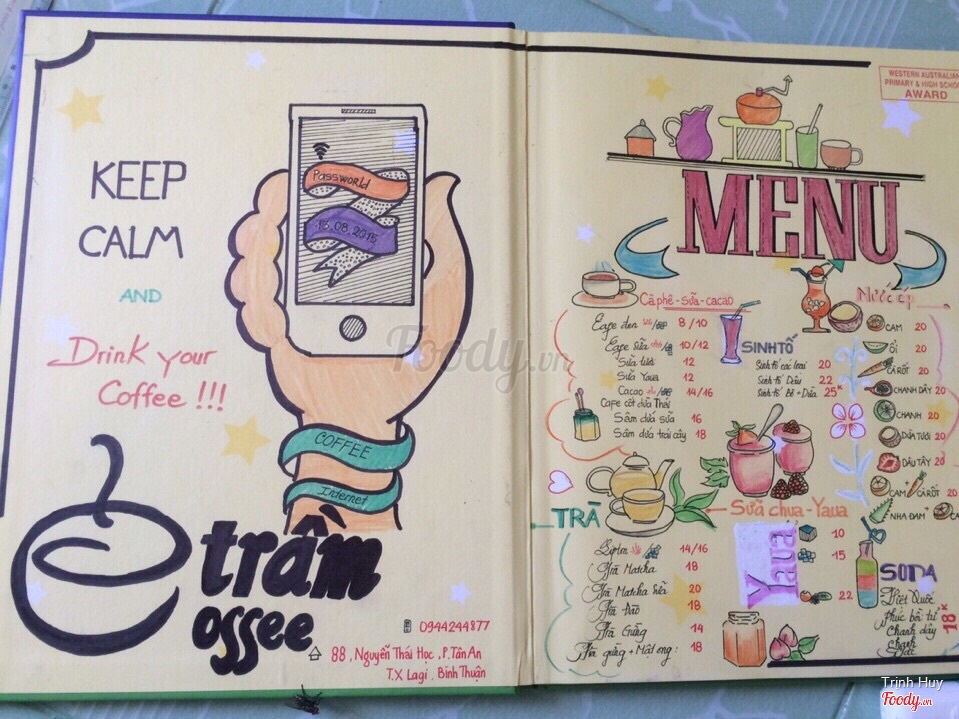 KEEP
CALM
AND
Drink your
Coffee !!!
Password
13.08.2015
COFFEE
Internet
trầm
offee
0944244877
88, Nguyễn Thái Học , P.Tân An
T.X Lagi , Bình Thuận
WESTERN AUSTRALIAN
PRIMARY & HIGH SCHO
AWARD
MENU
Cà phê - sữa - cacao
Cafe đen 8 / 10
Cafe sữa 10 / 12
Sữa tươi 12
Sữa Yaua 12
Cacao 14 / 16
Cafe cốt dừa Thái
Sâm dứa sữa 16
Sâm dứa trái cây 18
SINH TỐ
Sinh tố các loại 20
Sinh tố Dâu 22
Sinh tố Bơ + Dừa 25
Nước ép
CAM 20
ỔI 20
CÀ RỐT 20
CHANH DÂY 20
CHANH 20
DỪA TƯƠI 20
DÂU TÂY 20
CAM + CÀ RỐT 20
NHA ĐAM + CA
TRÀ
Lipton 14/16
Trà Matcha 18
Trà Matcha Sữa 20
Trà Đào 18
Trà Gừng 14
Trà gừng + Mật ong : 18
Sữa chua - Yaua
Yaua
10
15
22
SODA
Việt Quốc
Phúc bồ tử
Chanh dây
Chanh
18K
Foody.vn
Trinh Huy
Foody.vn